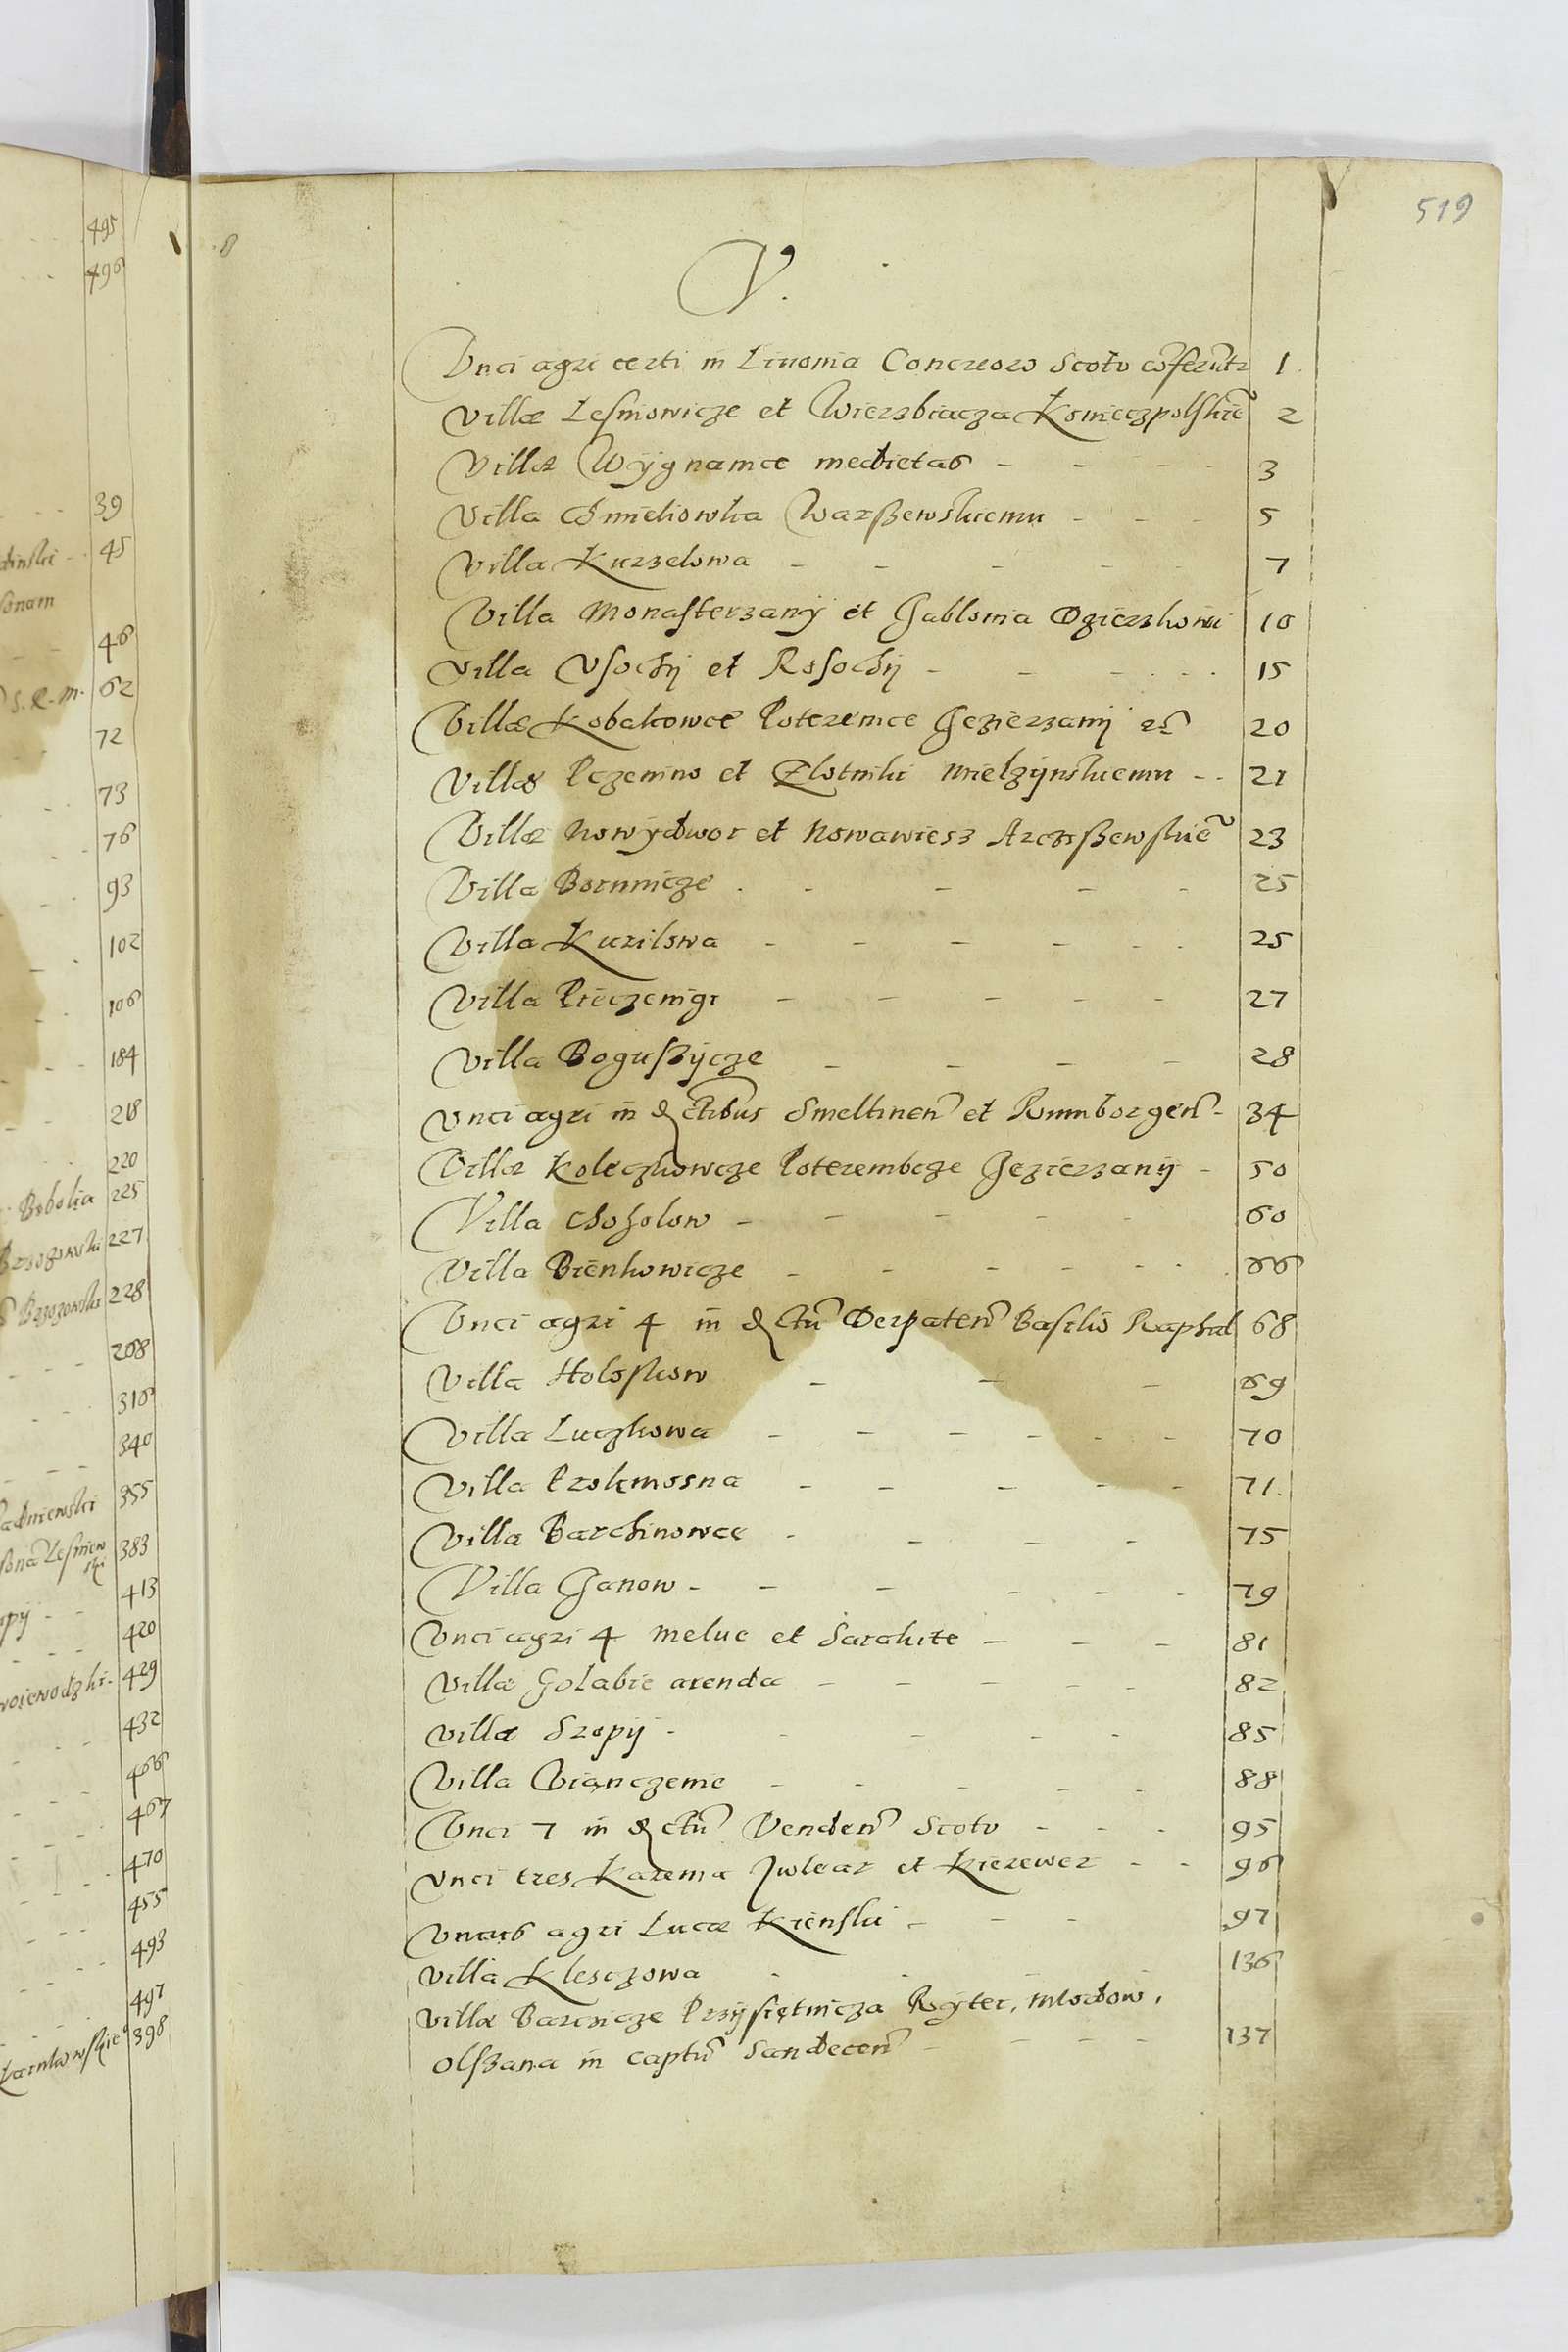 495
496
39
45
46
S. R. M. 62
72
73
76
93
102
106
184
218
220
Bobolia 225
227
Brzozowski 228
208
316
340
355
383
413
420
429
432
466
467
470
455
493
497
398
519
V.
Unci agri certi in Livonia Concreoro Scoto cōferūtr 1
Villæ Lesniowicze et Wierzbiacza Konieczpolskiē 2
Villæ Wÿgnance medietas 3
Villa Chmieliowka Warßewskiemu 5
Villa Kurzelowa 7
Villa Monasterzanÿ et Jablonia Dzierzkowi 10
Villa Vsochÿ et Rosochÿ 15
Villæ Kobakowce Poteremce Jezierzanÿ 20
Villæ Pczenino et Zlotniki Mielzÿnskiemu 21
Villæ Nowÿdwor et Nowawiesz Arczißewskiē 23
Villa Bortnicze 25
Villa Kurilowa 25
Villa Pieczenigi 27
Villa Bogußÿcze 28
Unci agri in dctibus Smeltinen et Rumborgen 34
Villæ Koleczkowcze Poterembcze Jezierzanÿ 50
Villa Choholow 60
Villa Bienkowicze 66
Unci agri 4 in dctū Derpaten Basilio Raphal 68
Villa Holoskow 69
Villa Luczkowa 70
Villa Prolemosna 71.
Villa Barchinowce 75
Villa Janow 79
Unci agri 4 Meluc et Sarakite 81
Villæ Golabie arenda 82
Villa Sropÿ 85
Villa Wianczenie 88
Unci 7 in dctū Venden Scoto 95
Unci tres Karema Juolear et Kierewer 96
Uncus agri Lucæ Kienski 97
Villa Klesczowa 136
Villæ Barcicze Przÿsietnicza Rÿter, Mlodow,
Olszana in captū Sandecen 137